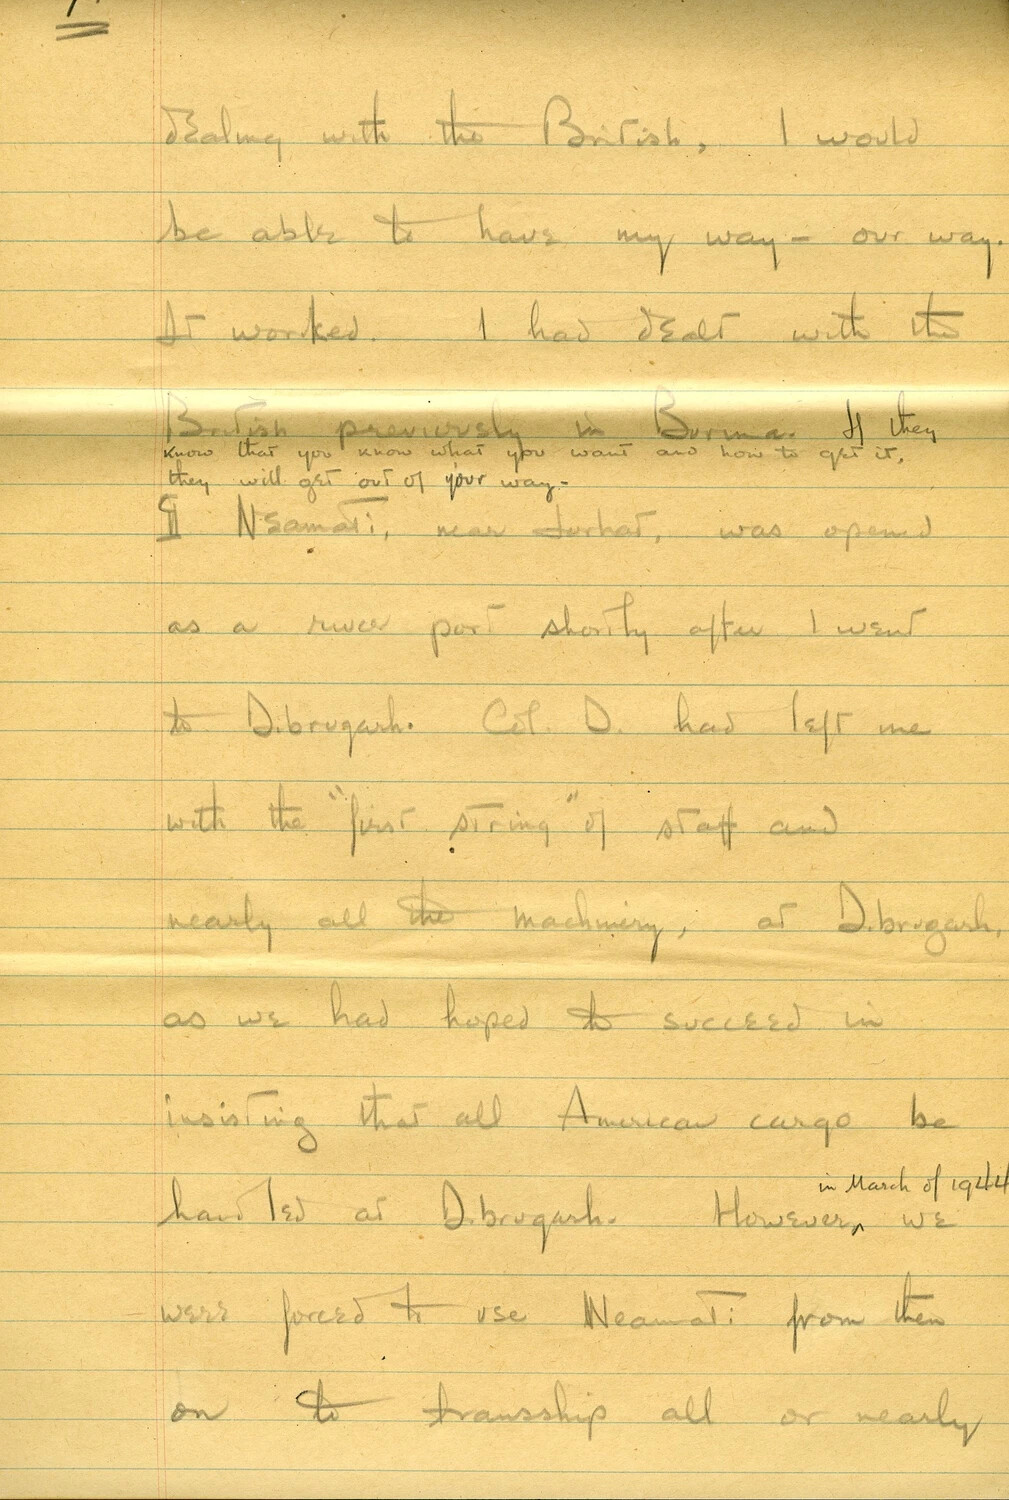 dealing with the British, I would
be able to have my way - our way.
It worked. I had dealt with the
British previously in Burma. If they
know that you know what you want and how to get it,
they will get out of your way.-
¶ Neamati, near Jorhat, was opened
as a river port shortly after I went
to Dibrugarh. Col. D. had left me
with the "first string" of staff and
nearly all the machinery, at Dibrugarh,
as we had hoped to succeed in
insisting that all American cargo be
in March of 1944
handled at Dibrugarh. However, ^ we
were forced to use Neamati from then
on to transship all or nearly